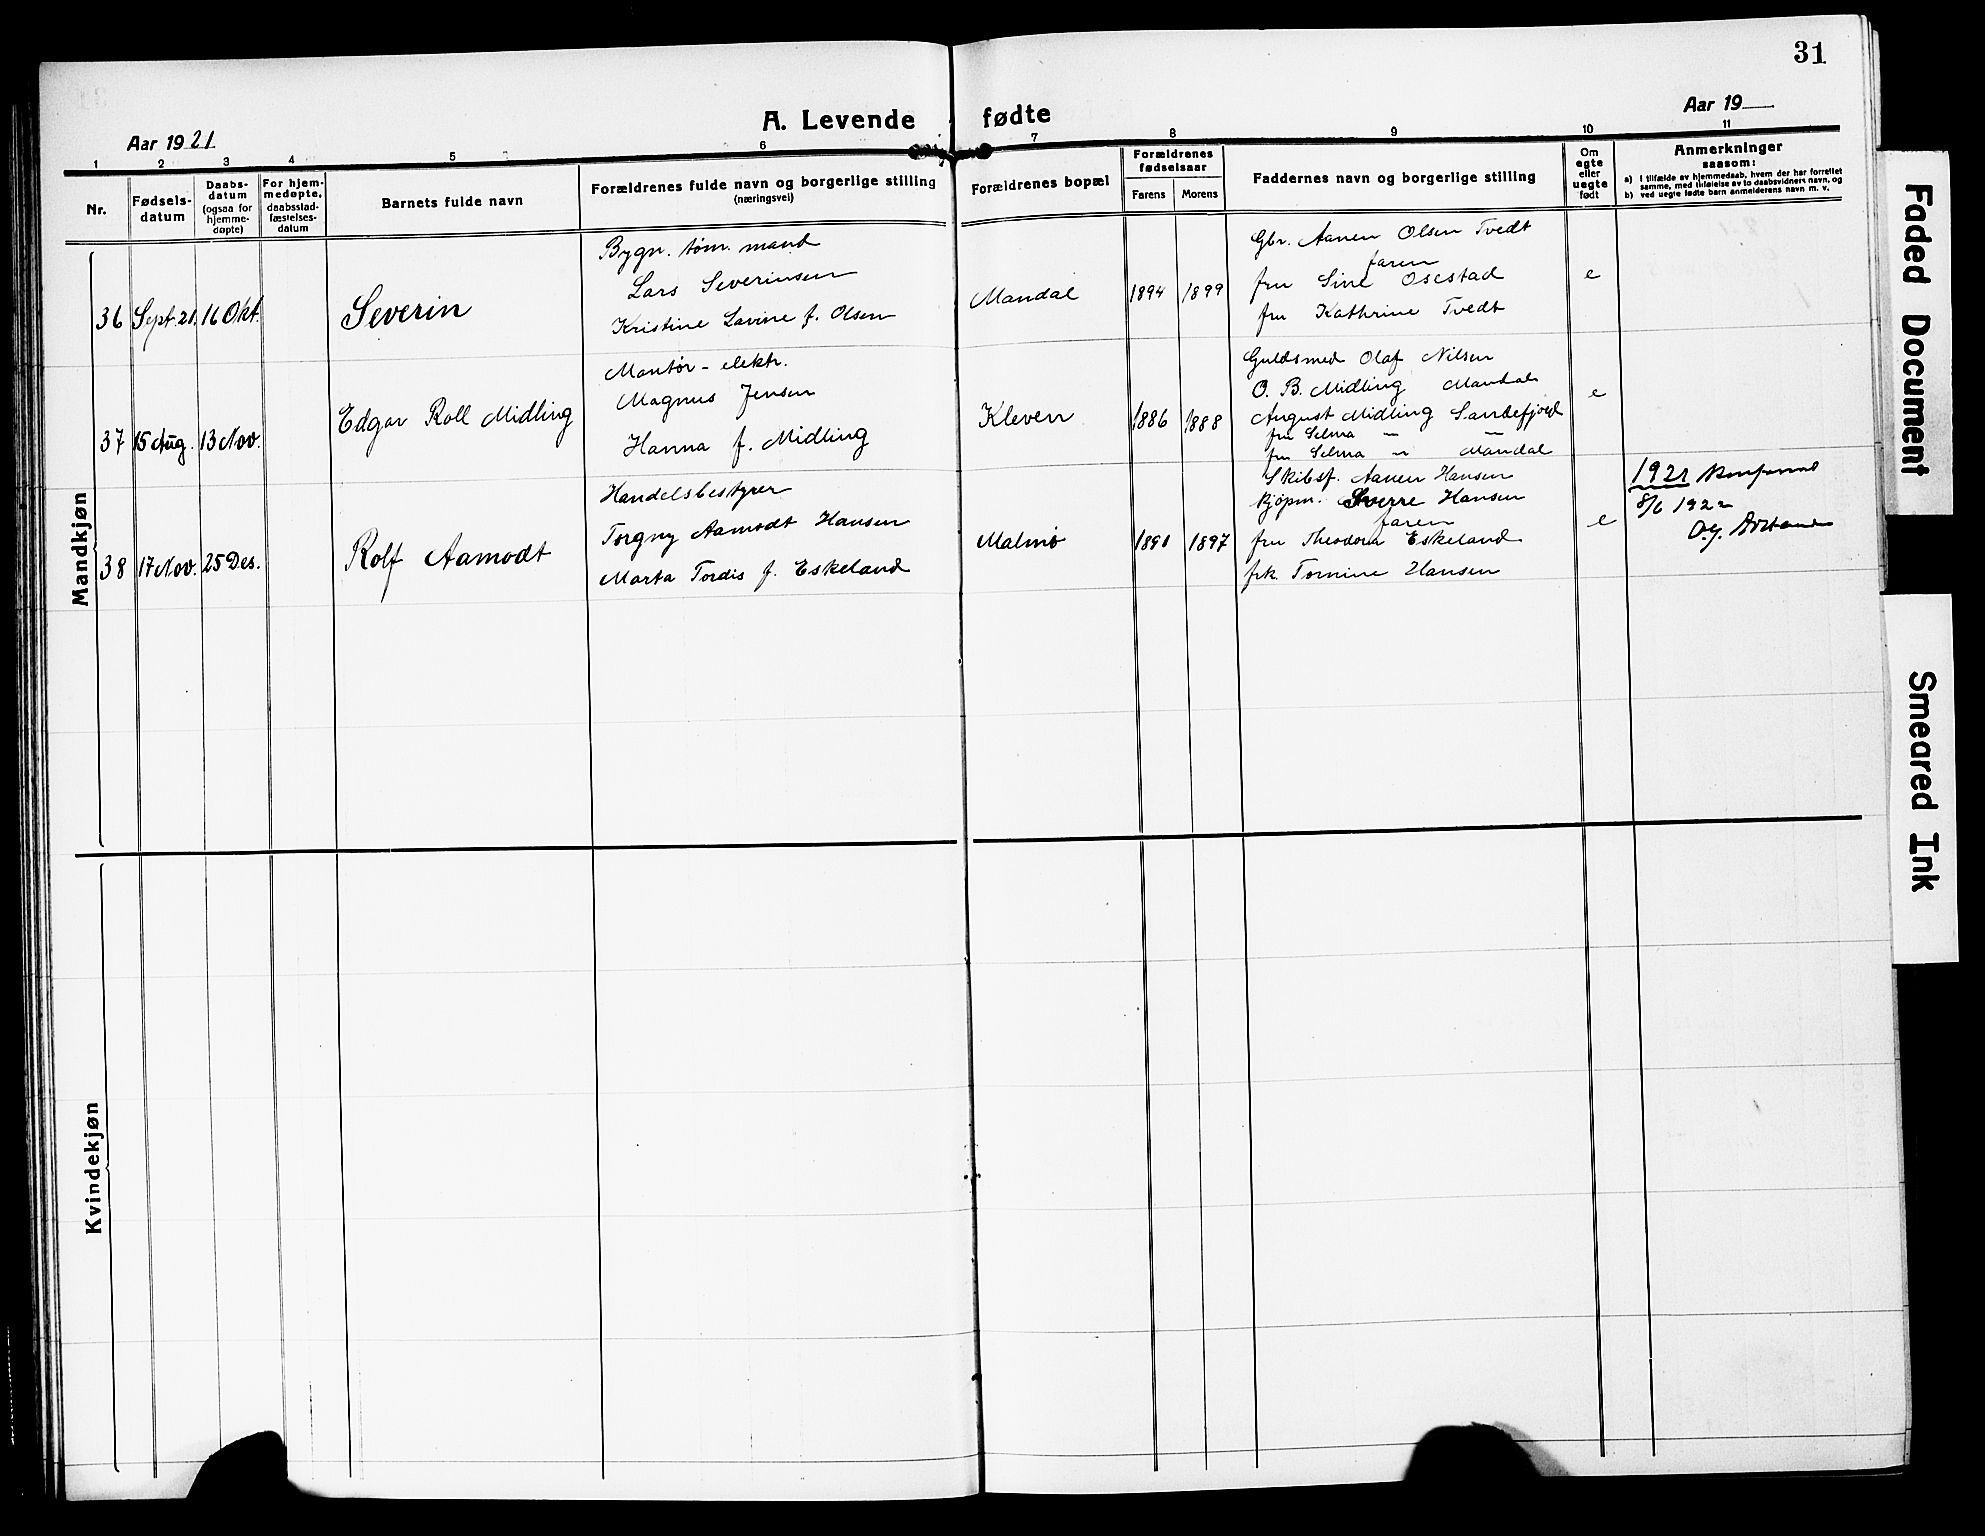 31
A. Levende fødte
Aar 1921
Aar 19
1 2 3 4 5 6 7 8 9 10 11
Nr.
Fødsels-
datum
Daabs-
datum
(ogsaa for
hjemme-
døpte)
For hjem-
medøpte,
daabsstad-
fæstelses-
datum
Barnets fulde navn
Forældrenes fulde navn og borgerlige stilling
(næringsvei)
Forældrenes bopæl
Forældrenes
fødselsaar
Farens Morens
Faddernes navn og borgerlige stilling
Om
egte
eller
uegte
født
Anmerkninger
saasom:
a) i tilfælde av hjemmedaab, hvem der har forrettet
samme, med tilføielse av to daabsvidners navn, og
b) ved uegte fødte barn anmelderens navn m. v.
Mandkjøn
36 Sept. 21. 16 Okt. Severin
Bygn. tøm. mand
Lars Severinsen
Kristine Lavine f. Olsen
Mandal 1894 1899
Gbr. Aanen Olsen Tvedt
faren
fru Sine Osestad
fru Kathrine Tvedt
e
37 15 Aug. 13 Nov. Edgar Roll Midling
Montør - elektr.
Magnus Jensen
Hanna f. Midling
Kleven 1886 1888
Guldsmed Olaf Nilsen
O. B. Midling Mandal
August Midling Sandefjord
fru Selma " "
fru Selma " Mandal
e
38 17 Nov. 25 Des. Rolf Aamodt
Handelsbestyrer
Torgny Aamodt Hansen
Marta Tordis f. Eskeland
Malmø 1891 1897
Skibsf. Aanen Hansen
kjøpm. Sverre Hansen
faren
fru Theodora Eskeland
frk. Tomine Hansen
e
1921
8/6 1922
Kvindekjøn
Faded Document
Smeared Ink